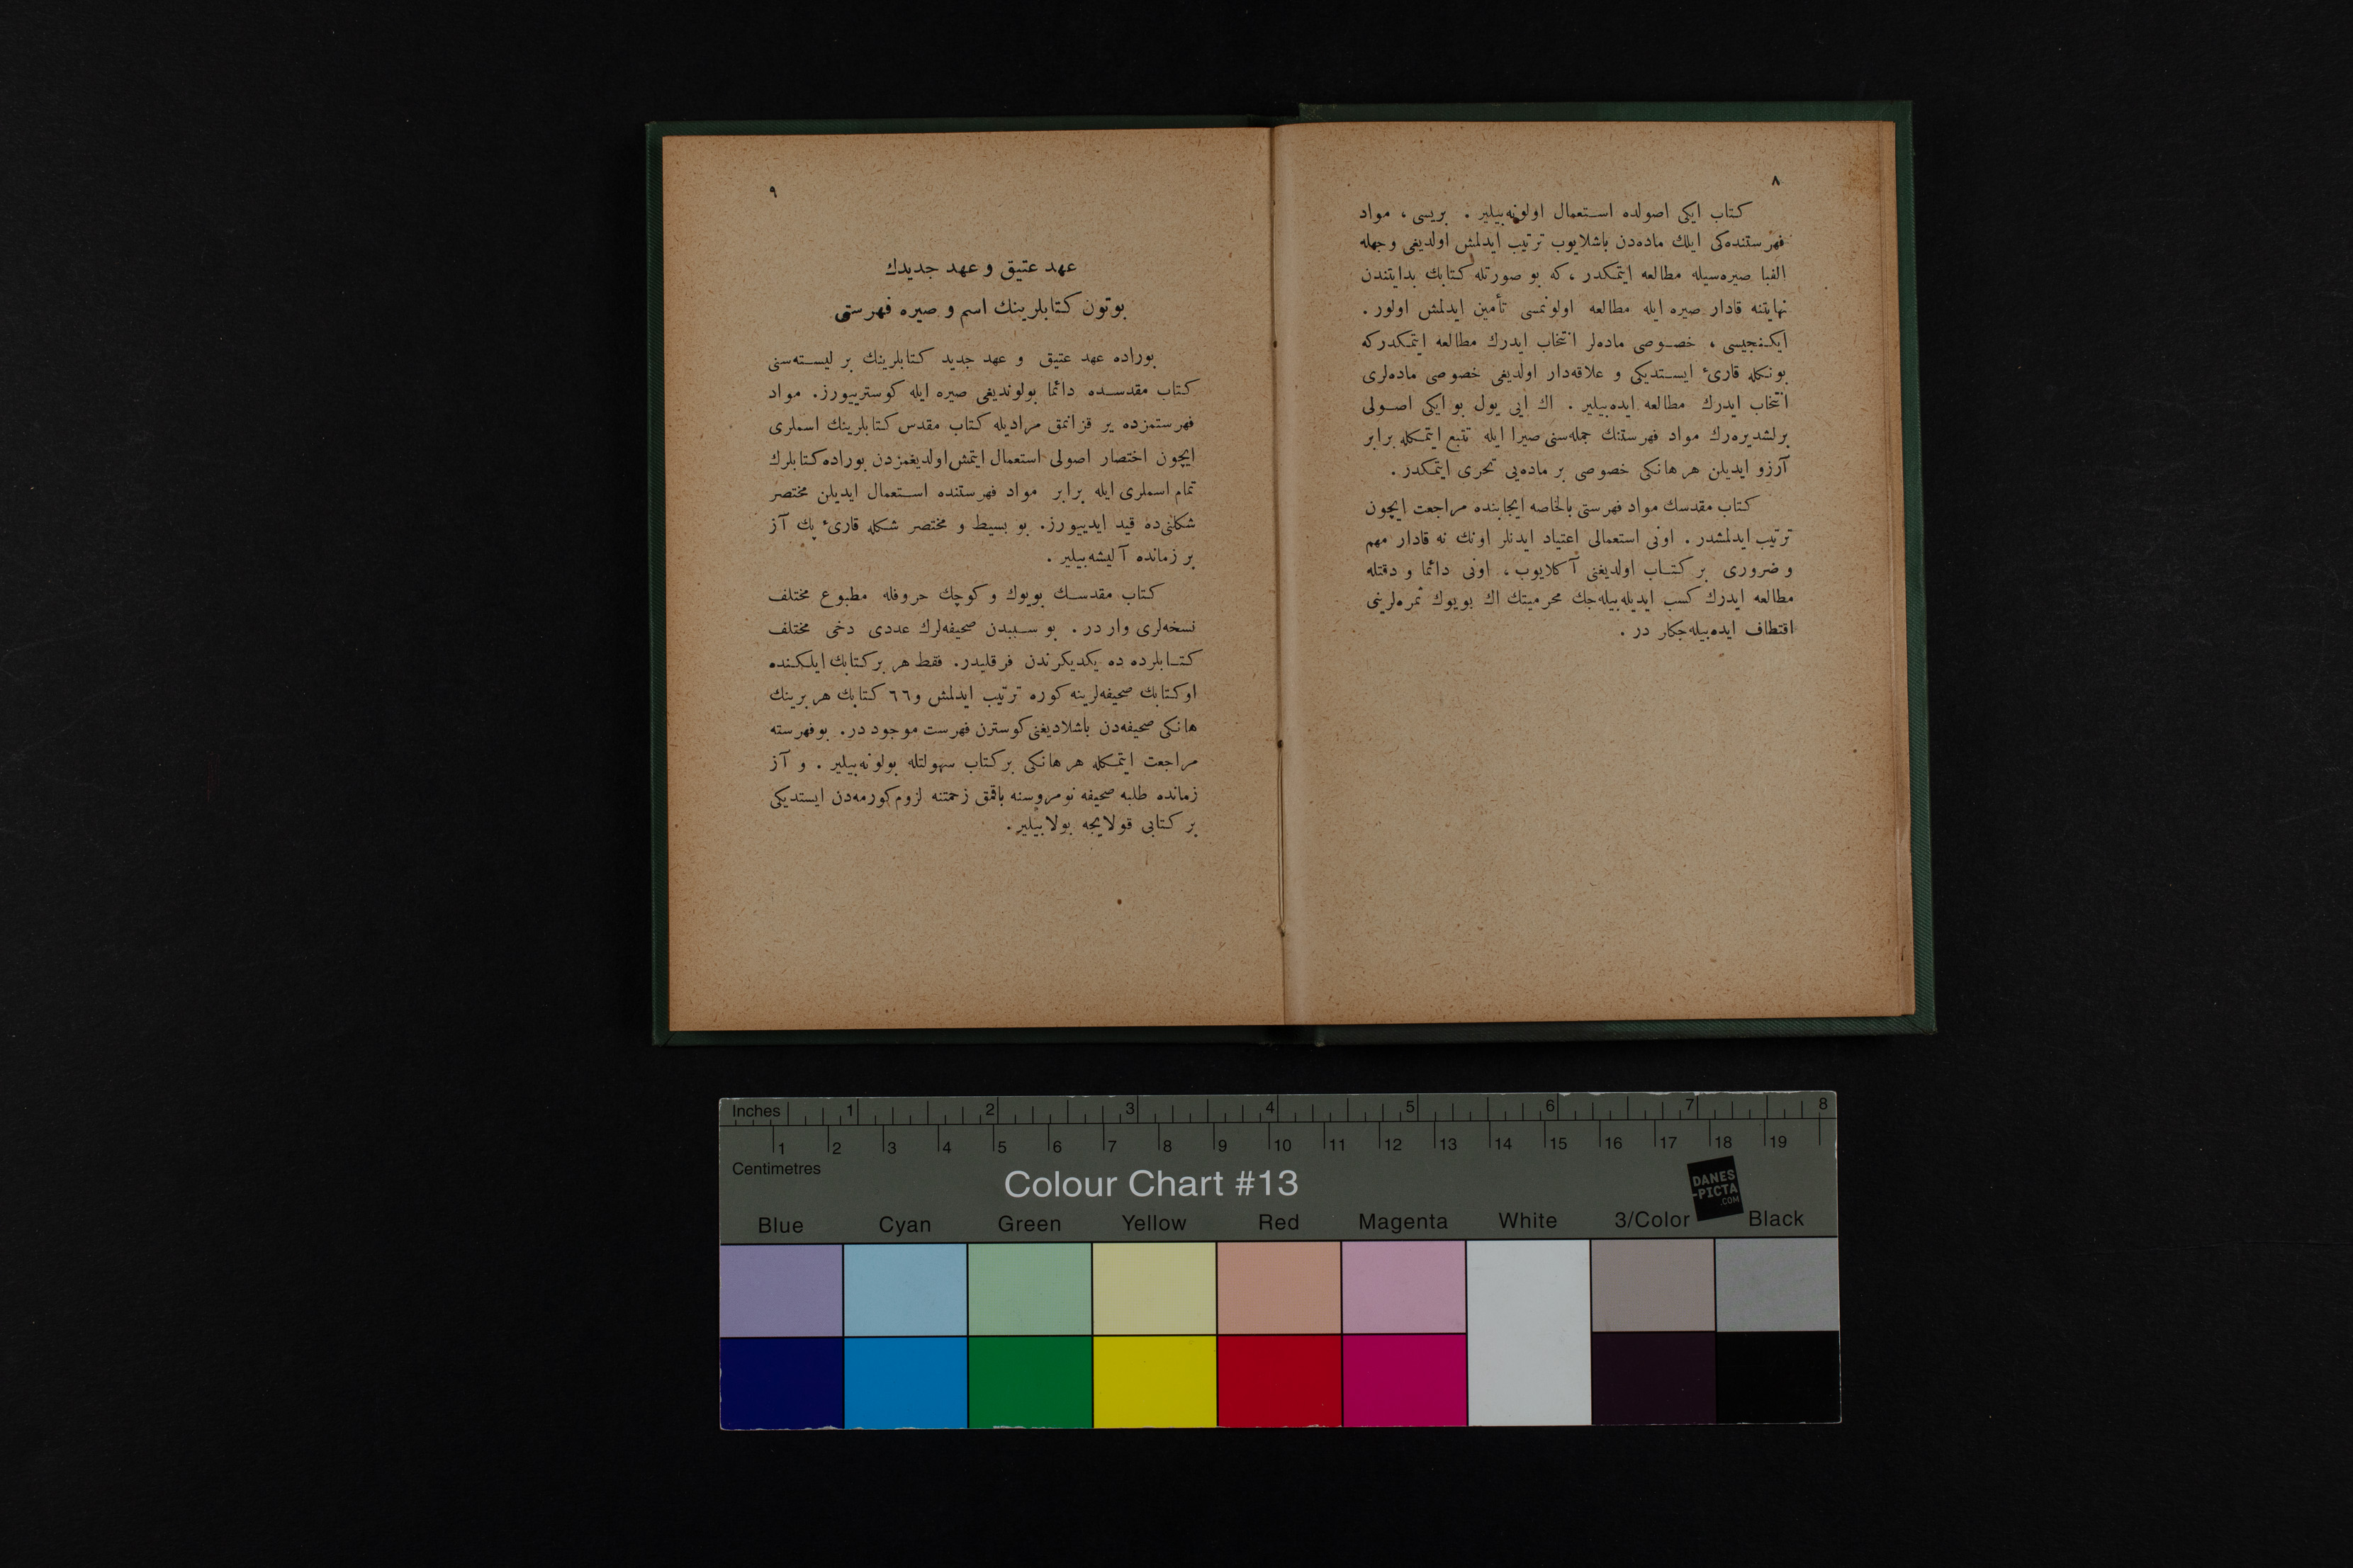 ٨
كتاب ايكى اصولده استعمال اولونه‌بيلير . بريسى ، مواد
فهرستنده‌كى ايلك ماده‌دن باشلايوب ترتيب ايدلمش اولديغى وجهله
الفبا صيره‌سيله مطالعه ايتمكدر ، كه بو صورتله كتابك بدايتندن
نهايتنه قادار صيره ايله مطالعه اولونمسى تأمين ايدلمش اولور .
ايكنجيسى ، خصوصى ماده‌لر انتخاب ايدرك مطالعه ايتمكدركه
بونكله قارئ ايستديكى و علاقه‌دار اولديغى خصوصى ماده‌لرى
انتخاب ايدرك مطالعه ايده‌بيلير . اك ايى يول بو ايكى اصولى
برلشديره‌رك مواد فهرستنك جمله‌سنى صيرا ايله تتبع ايتمكله برابر
آرزو ايديلن هر هانكى خصوصى بر ماده‌يى تحرى ايتمكدر .
كتاب مقدسك مواد فهرستى بالخاصه ايجابنده مراجعت ايچون
ترتيب ايدلمشدر . اونى استعمالى اعتياد ايدنلر اونك نه قادار مهم
و ضرورى بر كتاب اولديغنى آكلايوب ، اونى دائما و دقتله
مطالعه ايدرك كسب ايديله‌بيله‌جك محرميتك اك بويوك ثمره‌لرينى
اقتطاف ايده‌بيله‌جكلر در .
٩
عهد عتيق و عهد جديدك
بوتون كتابلرينك اسم و صيره فهرستى
بوراده عهد عتيق و عهد جديد كتابلرينك بر ليسته‌سنى
كتاب مقدسده دائما بولونديغى صيره ايله كوستريیورز. مواد
فهرستمزده ير قزانمق مراديله كتاب مقدس كتابلرينك اسملرى
ايچون اختصار اصولى استعمال ايتمش اولديغمزدن بوراده كتابلرك
تمام اسملرى ايله برابر مواد فهرستنده استعمال ايديلن مختصر
شكلنى‌ده قيد ايدييورز. بو بسيط و مختصر شكله قارئ پك آز
بر زمانده آليشه‌بيلير .
كتاب مقدسك بويوك و كوچك حروفله مطبوع مختلف
نسخه‌لرى وار در . بو سببدن صحيفه‌لرك عددى دخى مختلف
كتابلرده ده يكديكرندن فرقليدر. فقط هر بر كتابك ايلكنده
او كتابك صحيفه‌لرينه كوره ترتيب ايدلمش و ٦٦ كتابك هر برينك
هانكى صحيفه‌دن باشلاديغنى كوسترن فهرست موجود در. بو فهرسته
مراجعت ايتمكله هر هانكى بر كتاب سهولتله بولونه‌بيلير . و آز
زمانده طلبه صحيفه نومروسنه باقمق زحمتنه لزوم كورمه‌دن ايستديكى
بر كتابى قولايجه بولابيلير .
Inches 1 2 3 4 5 6 7 8
1 2 3 4 5 6 7 8 9 10 11 12 13 14 15 16 17 18 19
Centimetres
Colour Chart #13
DANES
-PICTA
.COM
Blue Cyan Green Yellow Red Magenta White 3/Color Black